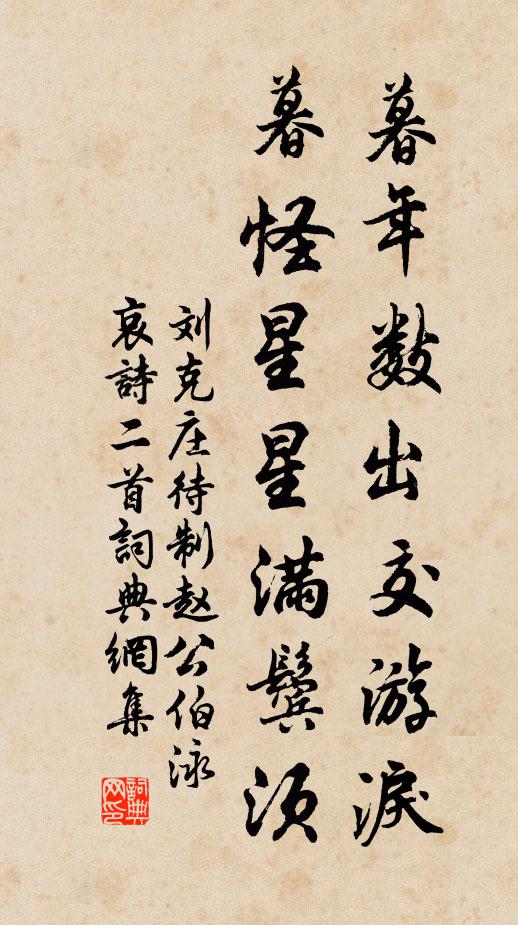 暮年数出交游淚
暮怪星星满鬓须
刘克庄待制赵公伯泳
哀詩二首詞典網集
詞典网印